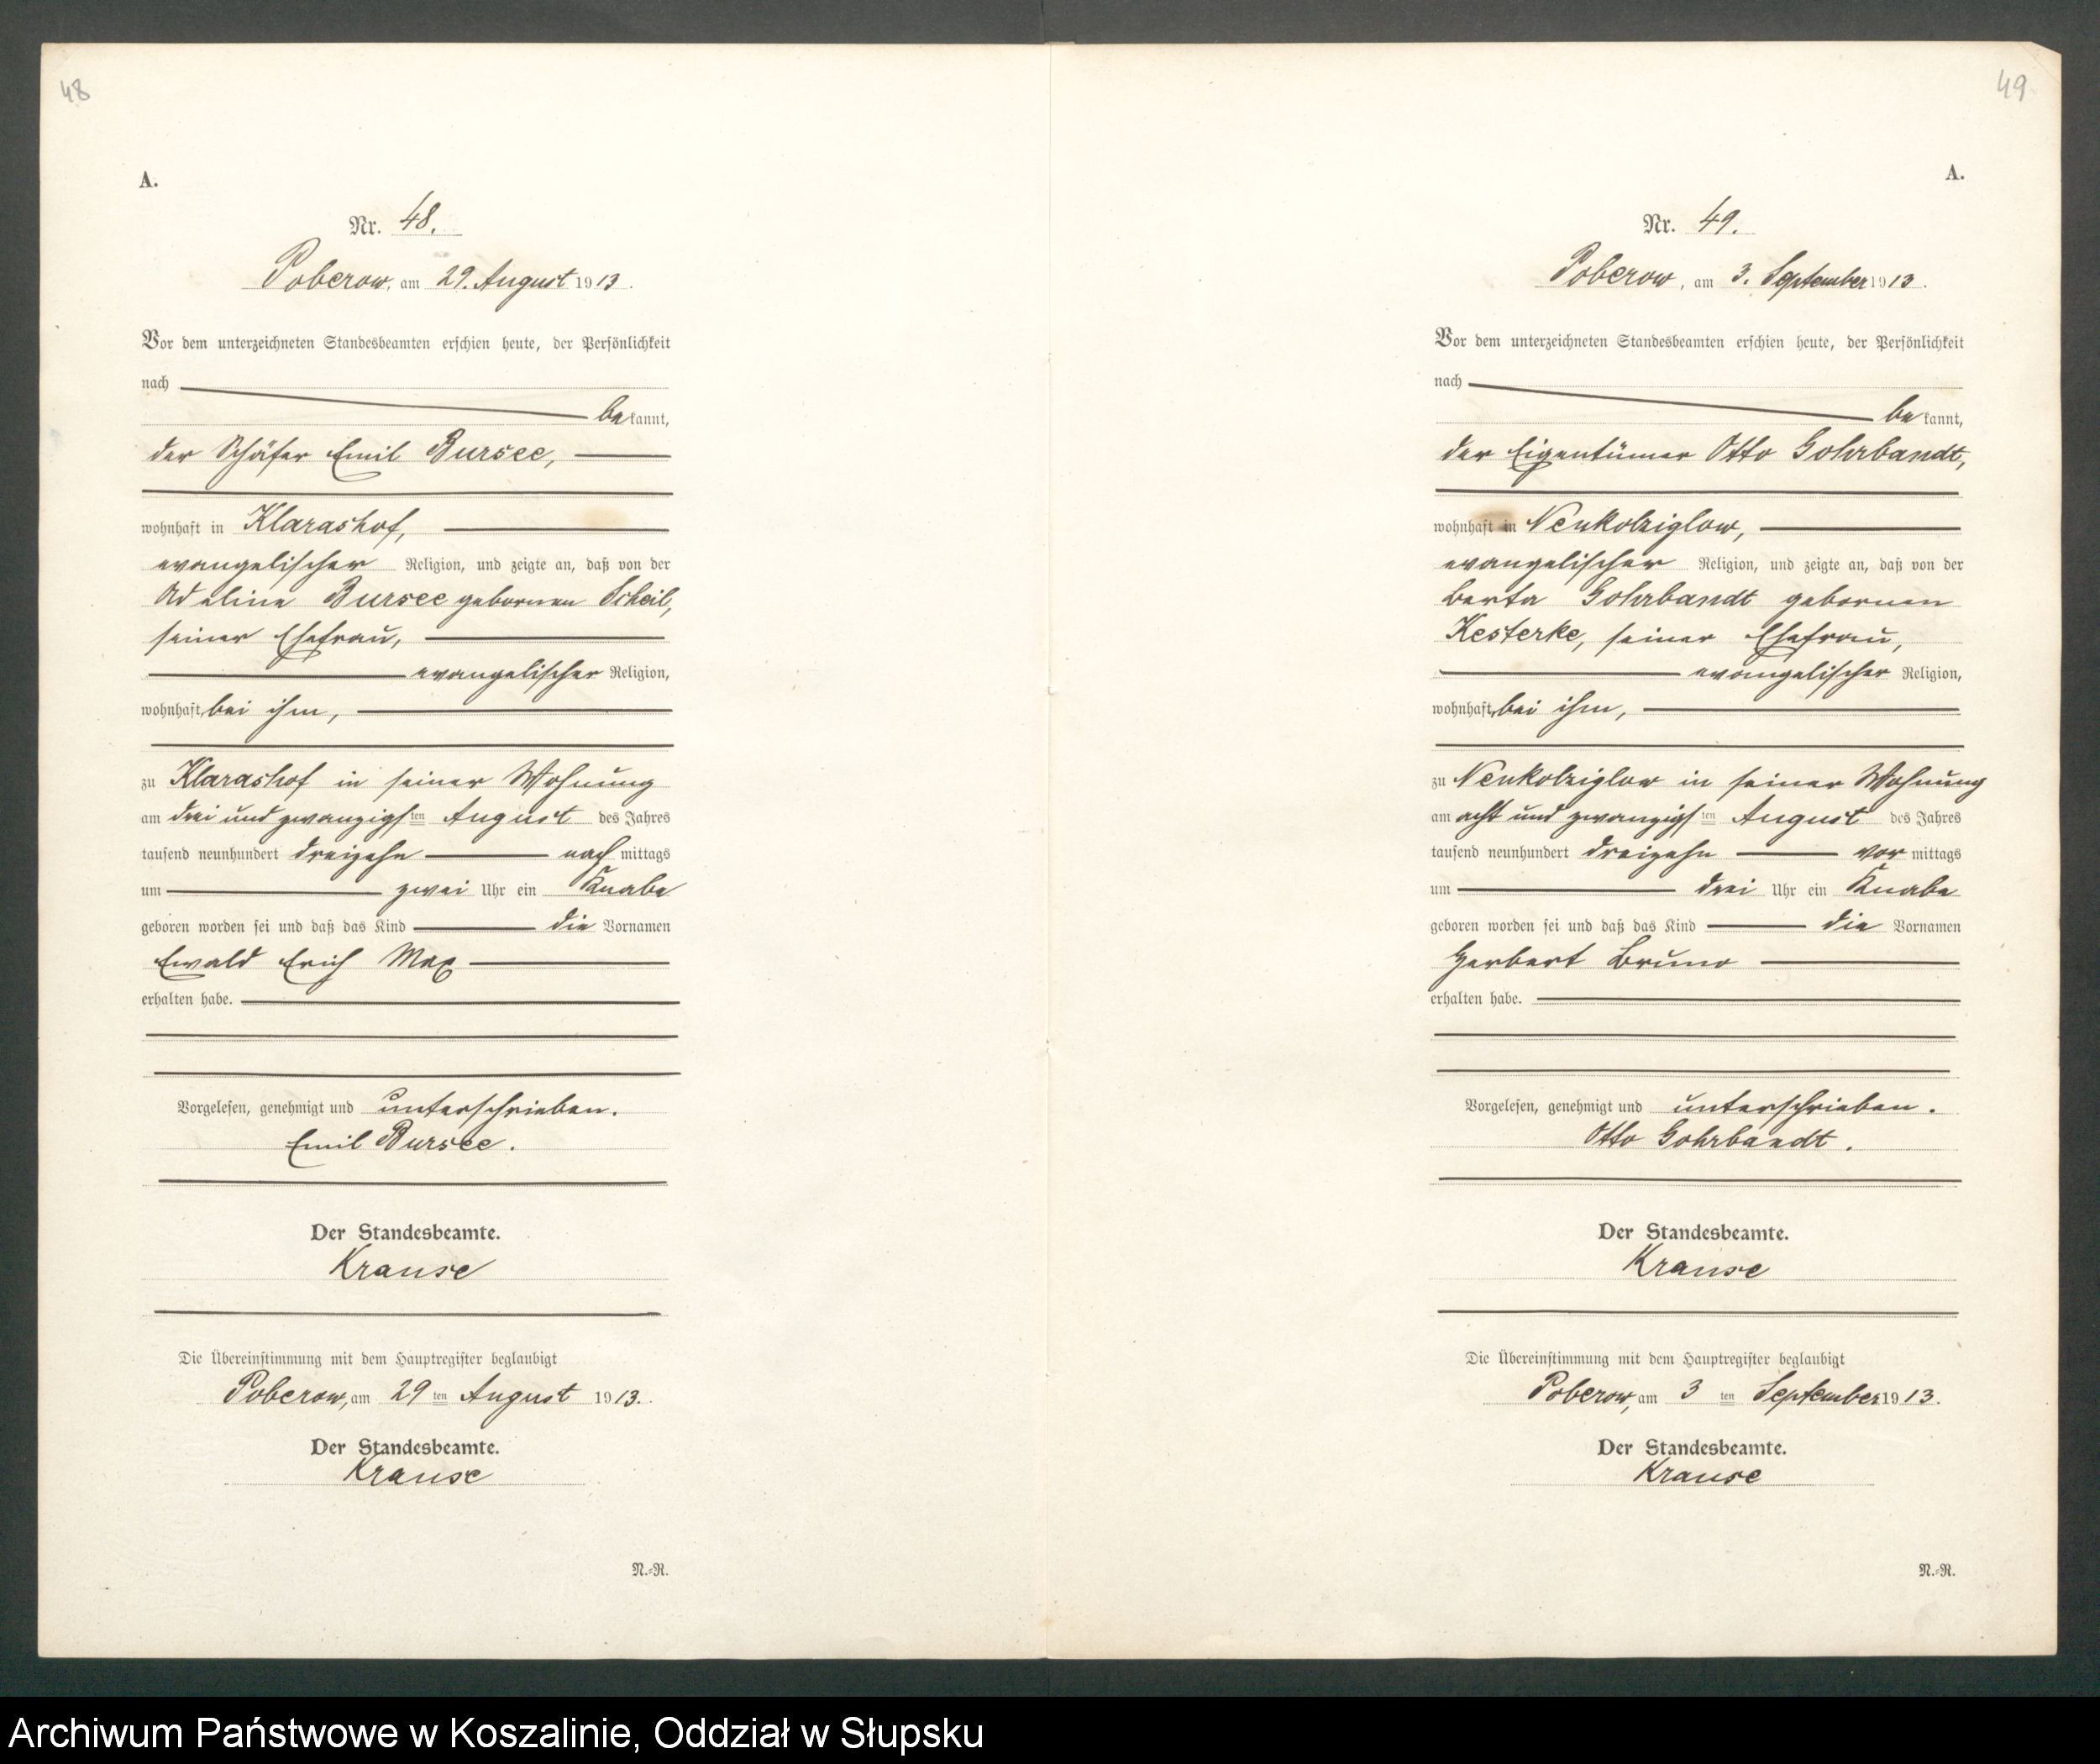 48
A.
Nr. 48.
Poberow, am 29. August 1913.
Vor dem unterzeichneten Standesbeamten erschien heute, der Persönlichkeit
nach
bekannt,
der Schäfer Emil Bursee,
wohnhaft in Klarashof,
evangelischer Religion, und zeigte an, daß von der
Adeline Bursee gebornen Scheil,
seiner Ehefrau,
evangelischer Religion,
wohnhaft, bei ihm,
zu Klarashof in seiner Wohnung
am drei und zwanzigsten August des Jahres
tausend neunhundert dreizehn nachmittags
um zwei Uhr ein Knabe
geboren worden sei und daß das Kind die Vornamen
Ewald Erich Max
erhalten habe.
Vorgelesen, genehmigt und unterschrieben.
Emil Bursee.
Der Standesbeamte.
Krause
Die Übereinstimmung mit dem Hauptregister beglaubigt
Poberow, am 29ten August 1913.
Der Standesbeamte.
Krause
N.-R.
49
A.
Nr. 49.
Poberow, am 3. September 1913.
Vor dem unterzeichneten Standesbeamten erschien heute, der Persönlichkeit
nach
bekannt,
der Eigentümer Otto Gohrbandt,
wohnhaft in Neukolziglow,
evangelischer Religion, und zeigte an, daß von der
Berta Gohrbandt gebornen
Kesterke, seiner Ehefrau,
evangelischer Religion,
wohnhaft, bei ihm,
zu Neukolziglow in seiner Wohnung
am acht und zwanzigsten August des Jahres
tausend neunhundert dreizehn vormittags
um drei Uhr ein Knabe
geboren worden sei und daß das Kind die Vornamen
Herbert Bruno
erhalten habe.
Vorgelesen, genehmigt und unterschrieben.
Otto Gohrbandt.
Der Standesbeamte.
Krause
Die Übereinstimmung mit dem Hauptregister beglaubigt
Poberow, am 3ten September 1913.
Der Standesbeamte.
Krause
N.-R.
Archiwum Państwowe w Koszalinie, Oddział w Słupsku